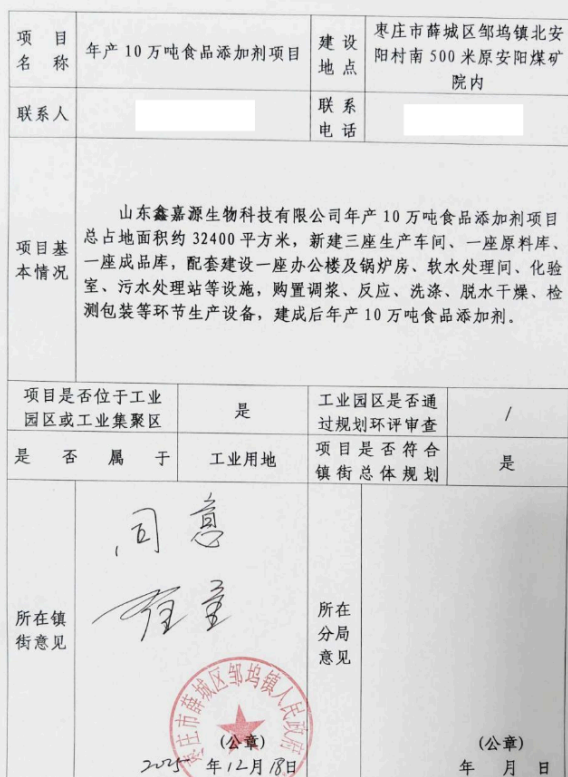 项目名称
年产10万吨食品添加剂项目
建设地点
枣庄市薛城区邹坞镇北安
阳村南500米原安阳煤矿
院内
联系人
联系电话
项目基
本情况
山东鑫嘉源生物科技有限公司年产10万吨食品添加剂项目
总占地面积约32400平方米，新建三座生产车间、一座原料库、
一座成品库，配套建设一座办公楼及锅炉房、软水处理间、化验
室、污水处理站等设施，购置调浆、反应、洗涤、脱水干燥、检
测包装等环节生产设备，建成后年产10万吨食品添加剂。
项目是否位于工业
园区或工业集聚区
是
工业园区是否通
过规划环评审查
/
是否属于
工业用地
项目是否符合
镇街总体规划
是
所在镇
街意见
同意
枣庄市薛城区邹坞镇人民政府
(公章)
2025年12月18日
所在
分局
意见
(公章)
年 月 日